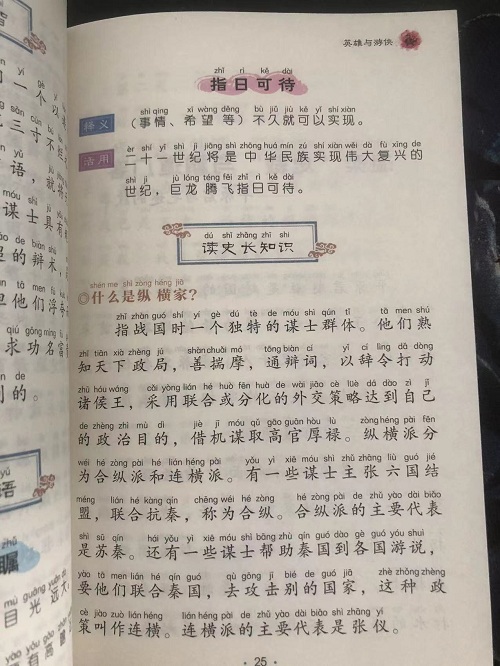 英雄与游侠
zhǐ rì kě dài
指日可待
shì qing xī wàng děng bù jiǔ jiù kě yǐ shí xiàn
释义 （事情、希望 等）不久就可以实现。
èr shí yī shì jì jiāng shì zhōng huá mín zú shí xiàn wěi dà fù xīng de
活用 二十一世纪将是 中华民族实现伟大复兴的
shì jì jù lóng téng fēi zhǐ rì kě dài
世纪，巨龙 腾飞指日可待。
dú shǐ zhǎng zhī shi
读史长知识
shén me shì zòng héng jiā
◎什么是纵 横家？
zhǐ zhàn guó shí yí gè dú tè de móu shì qún tǐ tā men shú
指战国时一个独特的谋士群体。他们熟
zhī tiān xià zhèng jú shàn chuǎi mó tōng biàn cí yǐ cí lìng dǎ dòng
知天下政局，善揣摩，通辩词，以辞令打动
zhū hóu wáng cǎi yòng lián hé huò fēn huà de wài jiāo cè lüè dá dào zì jǐ
诸侯王，采用联合或分化的外交策略达到自己
de zhèng zhì mù dì jiè jī móu qǔ gāo guān hòu lù zòng héng pài fēn
的政治目的，借机谋取高官厚禄。纵横派分
wéi hé zòng pài hé lián héng pài yǒu yì xiē móu shì zhǔ zhāng liù guó jié
为合纵派和连横派。有一些谋士主张 六国结
méng lián hé kàng qín chēng wéi hé zòng hé zòng pài de zhǔ yào dài biǎo
盟，联合抗秦，称为合纵。合纵派的主要代表
shì sū qín hái yǒu yì xiē móu shì bāng zhù qín guó dào gè guó yóu shuì
是苏秦。还有一些谋士帮助秦国到各国游说，
yào tā men lián hé qín guó qù gōng jī bié de guó jiā zhè zhǒng zhèng
要他们联合秦国，去攻击别的国家，这种 政
cè jiào zuò lián héng lián héng pài de zhǔ yào dài biǎo shì zhāng yí
策叫作连横。连横派的主要代表是张仪。
·25·